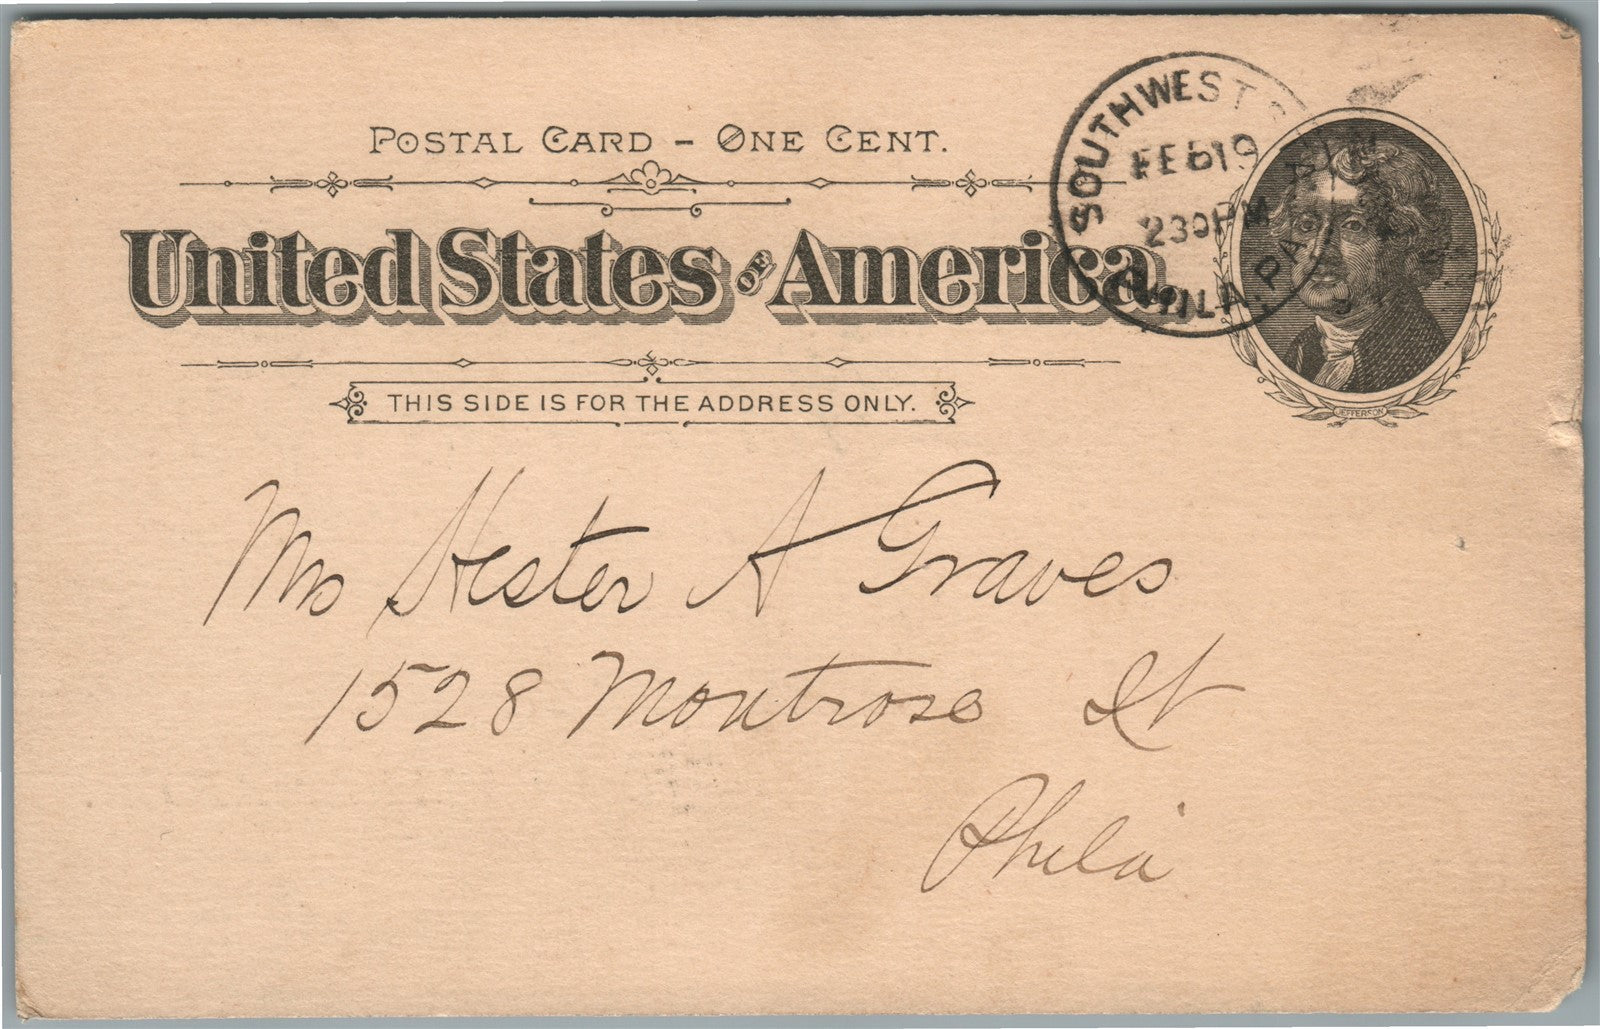 POSTAL CARD – ONE CENT.
United States OF America.
THIS SIDE IS FOR THE ADDRESS ONLY.
SOUTHWEST
FEB 19
230 PM
PHILA. PA
JEFFERSON
Mrs Hester A Graves
1528 Montrose St
Phila